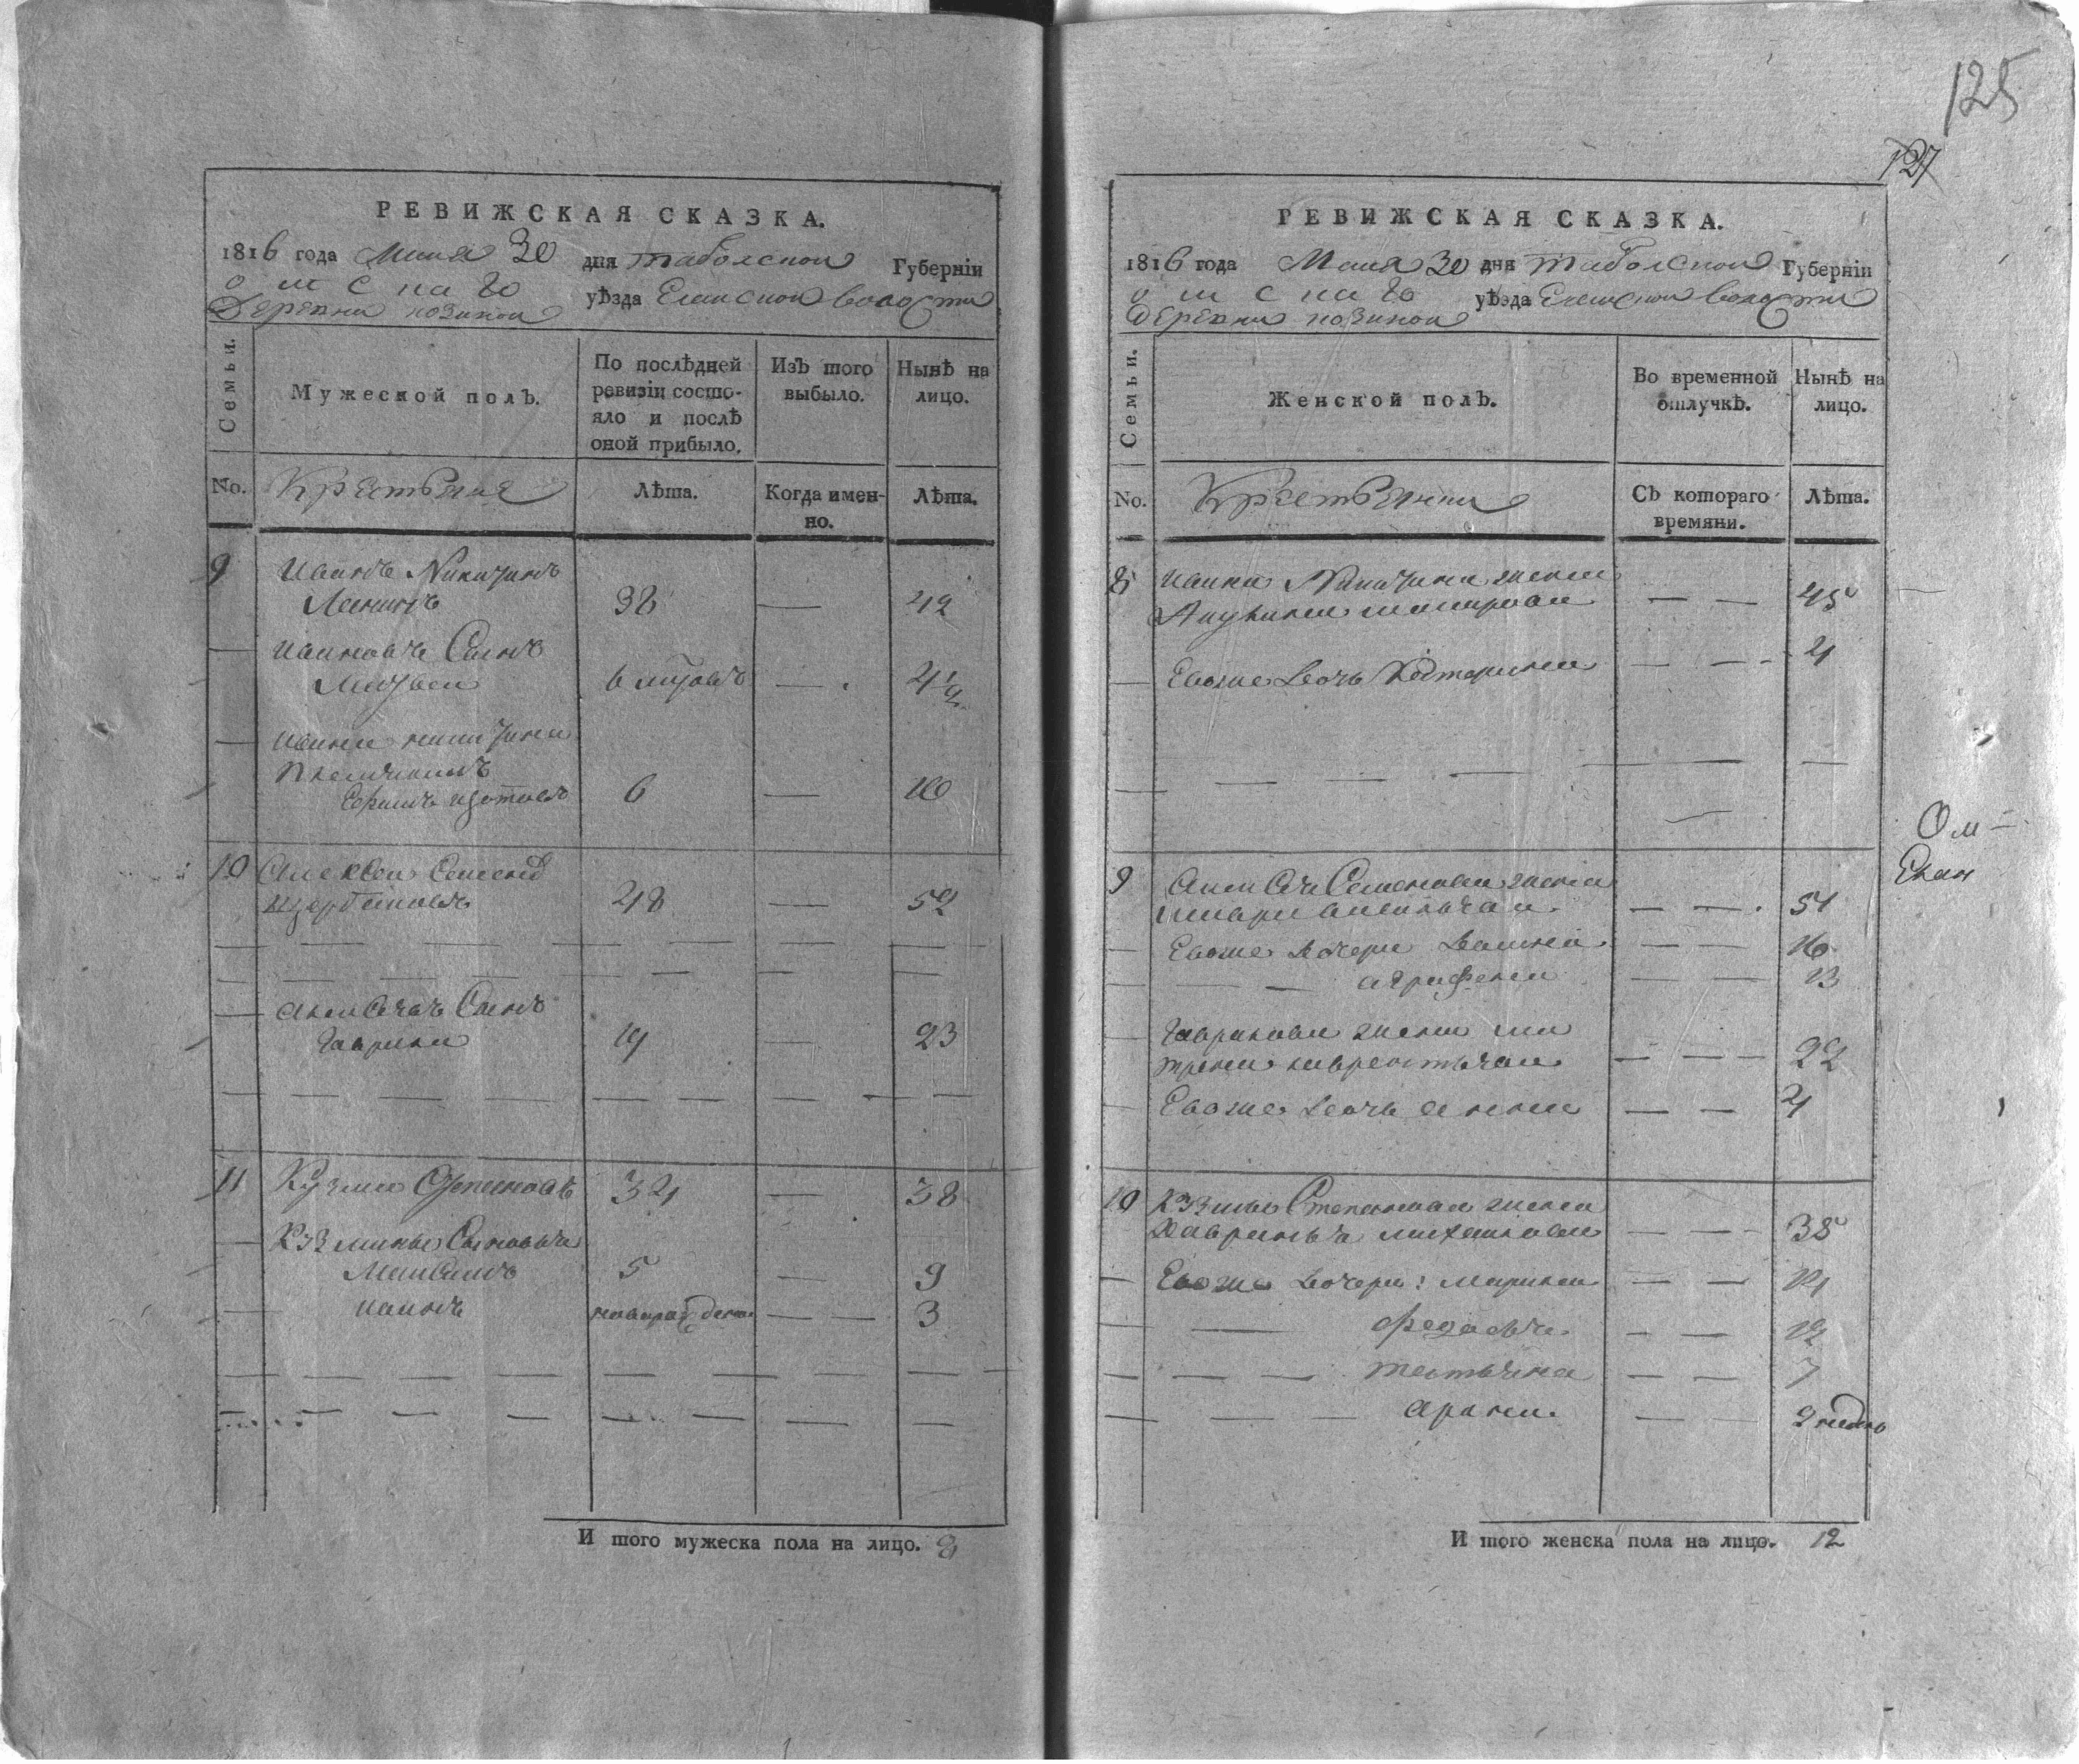 РЕВИЖСКАЯ СКАЗКА.
1816 года Маия 30 дня таболскои Губерніи
омскаго уѣзда Еланскои воласти
Деревни позинои
Семьи.
Мужеской полъ.
По послѣдней ревизіи состояло и послѣ оной прибыло.
Изъ того выбыло.
Нынѣ на лицо.
No.
Крестьяня
Лѣта.
Когда именно.
Лѣта.
9 Иванъ Никитинъ
38 — 42
— Ивановъ Сынъ
Матвеи — 4¼
— Ивана никитина
племянникъ
Ефимъ 6 — 10
10 Алексеи Семенов
щербаковъ 48 — 52
— Алексеевъ Сынъ
Гаврила 19 — 23
11 Кузма Степановъ 34 — 38
— Кузмины Сыновья
Максимъ 5 — 9
— иванъ — — 3
И того мужеска пола на лицо. 8
125
127
РЕВИЖСКАЯ СКАЗКА.
1816 года Маия 30 дня таболскои Губерніи
омскаго уѣзда Еланскои воласти
деревни позинои
Семьи.
Женской полъ.
Во временной отлучкѣ.
Нынѣ на лицо.
No.
Крестьянки
Съ котораго времяни.
Лѣта.
8 ивана Никитина жена
— — 45
— Евоже дочь Катерина — — 4
Ом
Елан
9 Алексея Семенова жена
— — 54
— Евоже дочери — — 16
— — аграфена — — 13
— Гаврилова жена ма
трена лаврентьева — — 22
— Евоже дочь анна — — 4
10 Кузмы Степанова жена
Кавринья михаилова — — 35
— Евоже дочери: Марина — — 14
— — федосья — — 12
— — татьяна — — 7
— — арина — — 2
И того женска пола на лицо. 12